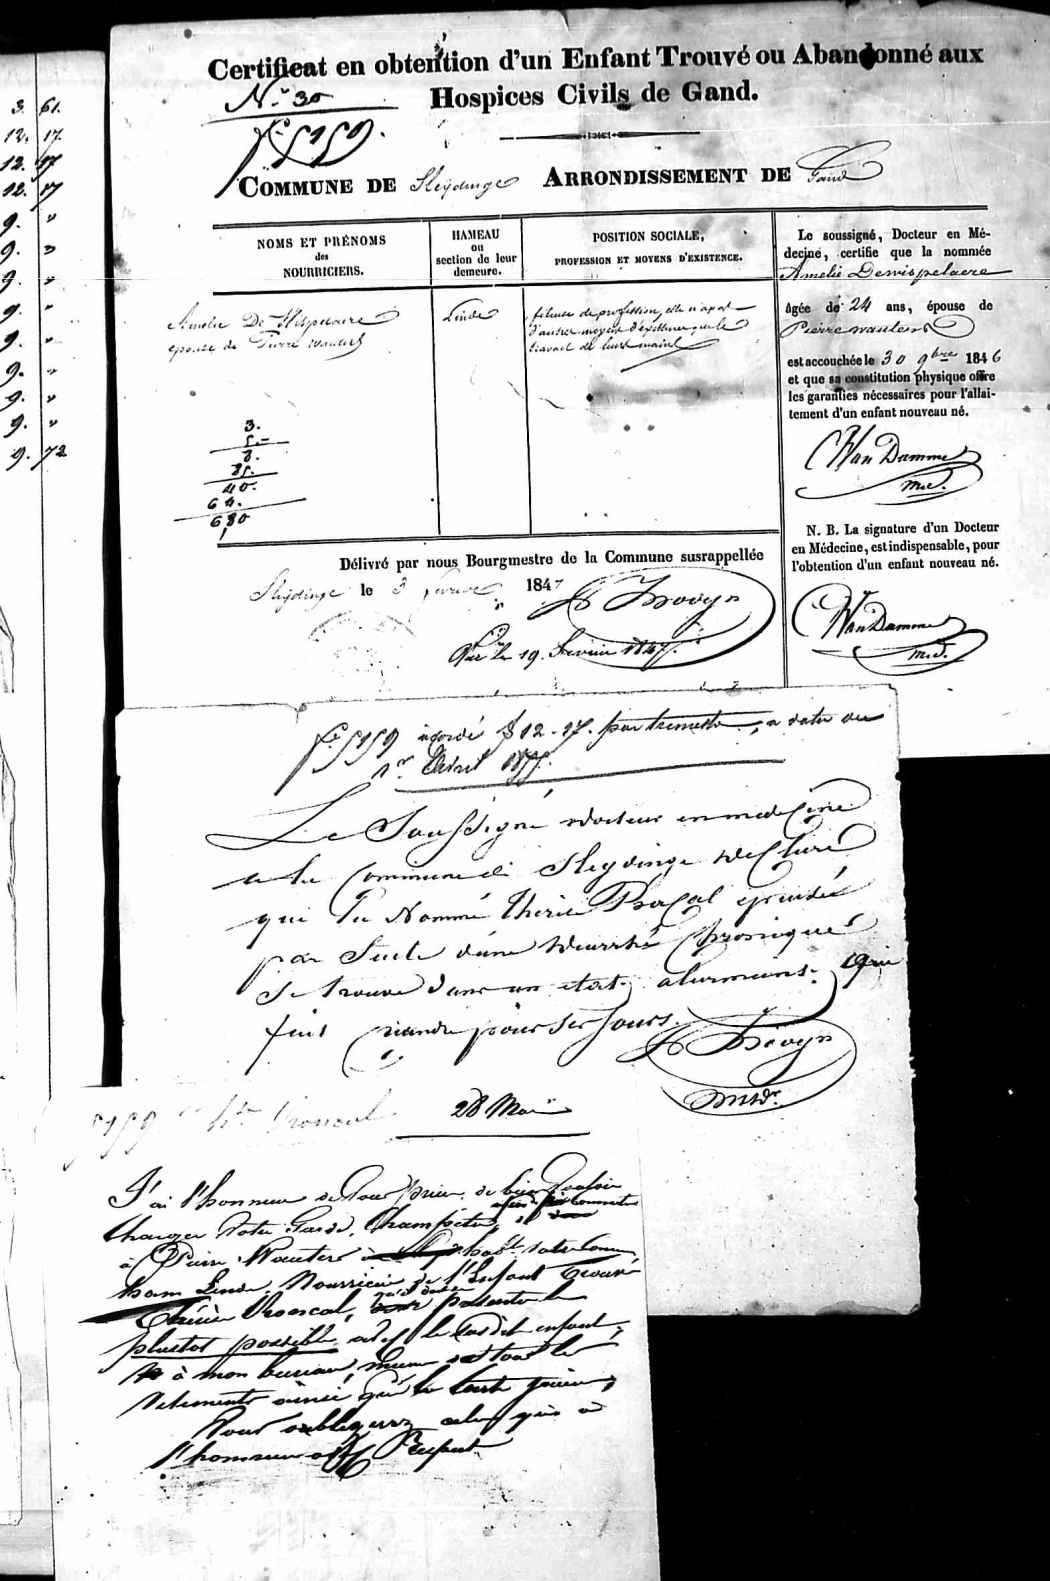 3. 61.
12. 17.
12. 17
12. 17
9. "
9. "
9. "
9. "
9. "
9. "
9. "
9. "
9. 72
Certificat en obtention d'un Enfant Trouvé ou Abandonné aux
Hospices Civils de Gand.
N.° 30
f° 5159.
COMMUNE DE Sleydinge ARRONDISSEMENT DE Gand
NOMS ET PRÉNOMS
des
NOURRICIERS.
HAMEAU
ou
section de leur
demeure.
POSITION SOCIALE,
PROFESSION ET MOYENS D'EXISTENCE.
Amelie De Wispelaere
epouse de Pierre wauters
Linde
fileuse de profession, elle n'a pas
d'autres moyens d'existence que le
travail de leurs mains
3.
5.-
8.
35.
40.
64.
6,80
Le soussigné, Docteur en Mé-
decine, certifie que la nommée
Amelie Dewispelaere
âgée de 24 ans, épouse de
Pierre wauters
est accouchée le 30 9bre 1846
et que sa constitution physique offre
les garanties nécessaires pour l'allai-
tement d'un enfant nouveau né.
Van Damme
med.
N. B. La signature d'un Docteur
en Médecine, est indispensable, pour
l'obtention d'un enfant nouveau né.
Van Damme
med.
Délivré par nous Bourgmestre de la Commune susrappellée
Sleydinge le 3 1847
Vu le 19. Fevrier 1847.
f° 5159 accordé 12-17. par trimestre, a dater du
1er Avril 1855.
Le Soussigné docteur en medecine
a la Commune de Sleydinge declare
que la Nommé Therese epuisée
par Suite d'une diarrhé Chronique
se trouve dans un etat alarmant. qui
fait craindre pour ses jours.
5159
28 Mai
J'ai l'honneur de vous prier de bien vouloir
charger votre Garde Champêtre
à Pierre Wauters votre Comm.
ham Linde, Nourricier de l'Enfant Trouvé
Thérèse présenter le
plustot possible avec le dit enfant,
à mon bureau, muni de tous les
vetements ainsi que le
Vous obligerez celui qui a
l'honneur